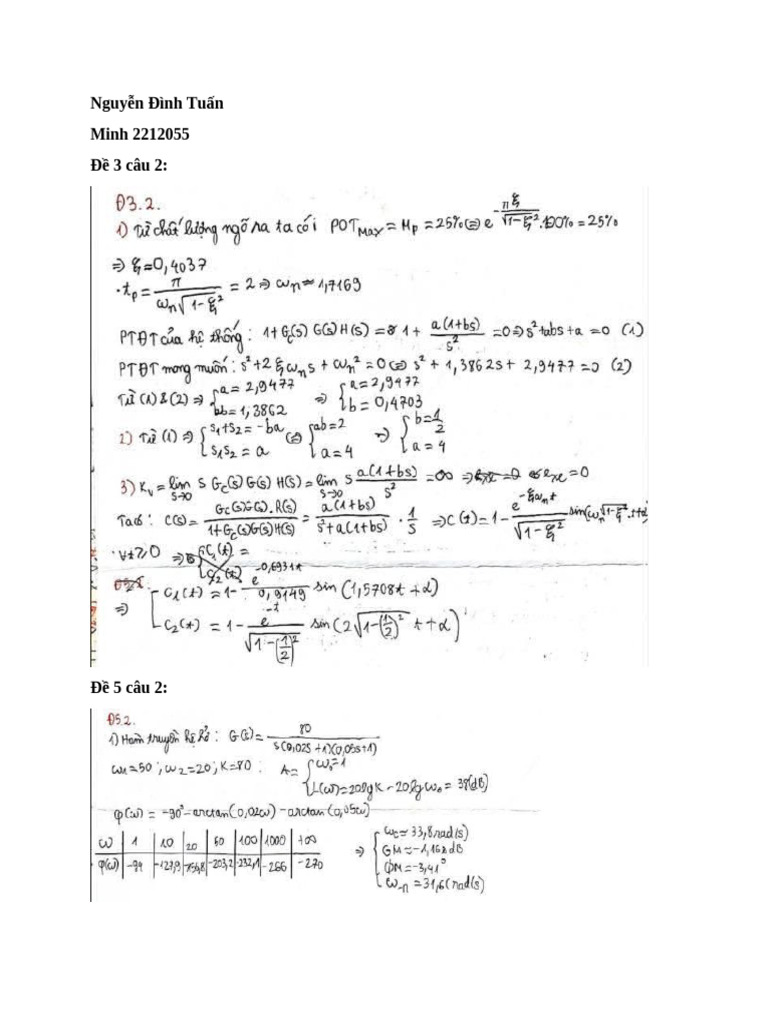 Nguyễn Đình Tuấn
Minh 2212055
Đề 3 câu 2:
Đ3.2.
1) Từ chất lượng ngõ ra ta có: POT_Max = Mp = 25% ⇔ e^(-πξ/√(1-ξ²)).100% = 25%
⇒ ξ = 0,4037
· tp = π/(ωn√(1-ξ²)) = 2 ⇒ ωn ≈ 1,7169
PTĐT của hệ thống: 1+Gc(s)G(s)H(s) = 1 + a(1+bs)/s² = 0 ⇒ s²+abs+a = 0 (1)
PTĐT mong muốn: s²+2ξωns+ωn² = 0 ⇔ s² + 1,3862s + 2,9477 = 0 (2)
Từ (1)&(2) ⇒ { a = 2,9477 ; ab = 1,3862 ⇒ { a = 2,9477 ; b = 0,4703
2) Từ (1) ⇒ { s1+s2 = -ba ; s1s2 = a ⇔ { ab = 2 ; a = 4 ⇒ { b = 1/2 ; a = 4
3) Kv = lim s→0 s Gc(s)G(s)H(s) = lim s→0 s a(1+bs)/s² = ∞ ⇒ exl = 0
Ta có: C(s) = Gc(s)G(s).R(s)/(1+Gc(s)G(s)H(s)) = a(1+bs)/(s²+a(1+bs)) · 1/s ⇒ C(t) = 1 - e^(-ξωnt)/√(1-ξ²) sin(ωn√(1-ξ²).t+α)
∀t≥0
⇒ [ C1(t) = 1 - e^(-0,6931t)/0,9149 sin(1,5708t+α)
C2(t) = 1 - e^(-t)/√(1-(1/2)²) sin(2√(1-(1/2)²) t+α)
Đề 5 câu 2:
Đ5.2.
1) Hàm truyền hệ hở: G(s) = 80/(s(0,02s+1)(0,05s+1))
ω1 = 50 ; ω2 = 20 ; K = 80 : A = { ω0 = 1 ; L(ω) = 20lgK - 20lgω0 = 38(dB)
φ(ω) = -90° - arctan(0,02ω) - arctan(0,05ω)
ω | 1 | 10 | 20 | 50 | 100 | 1000 | +∞
φ(ω) | -94 | -127,9 | -156,8 | -203,2 | -232,1 | -266 | -270
⇒ { ωc ≈ 33,8 rad(s)
GM ≈ -1,162 dB
ΦM ≈ -3,41°
ω-π = 31,6(rad(s)